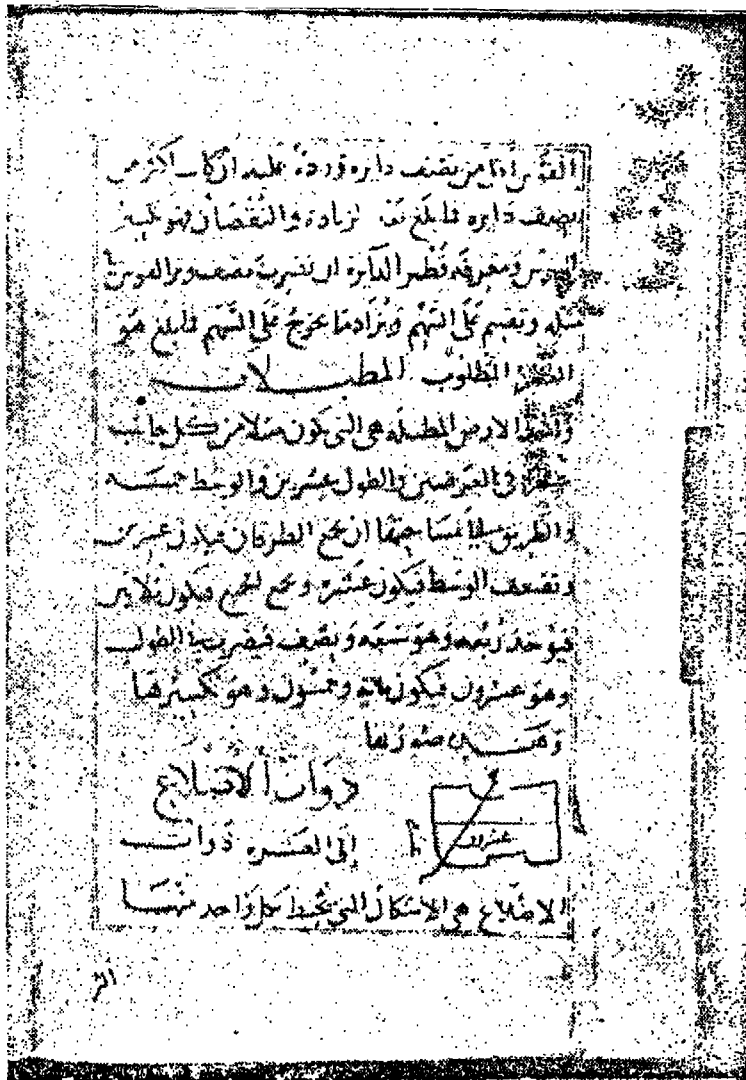 القوس أقل من نصف دايره وزده عليه ان كان اكثر من
نصف دايره فما بلغ بعد الزيادة والنقصان فهو
القوس ومعرفة قطر الدايرة ان تضرب نصف وتر القوس في
مثله وتقسم على السهم وتزاد ما يخرج على السهم فما بلغ هو
القطر المطلوب المطبلات
واما الارض المطبله هي التي تكون مثلا من كل جانب
عشرة في العرضين والطول عشرين والوسط خمسه
والطريق في مساحتها ان يجمع الطرفان فيكون عشرين
وتضعف الوسط فيكون عشرة ويجمع الجميع فيكون ثلاثين
فيوخذ ربعه وهو سبعه ونصف فيضرب في الطول
وهو عشرون فيكون مائة وخمسون وهو تكسيرها
وهذه صورتها
ذوات الاضلاع
عشرون
الى العشره ذوات
الاضلاع هي الاشكال التي يحيط بكل واحد منها